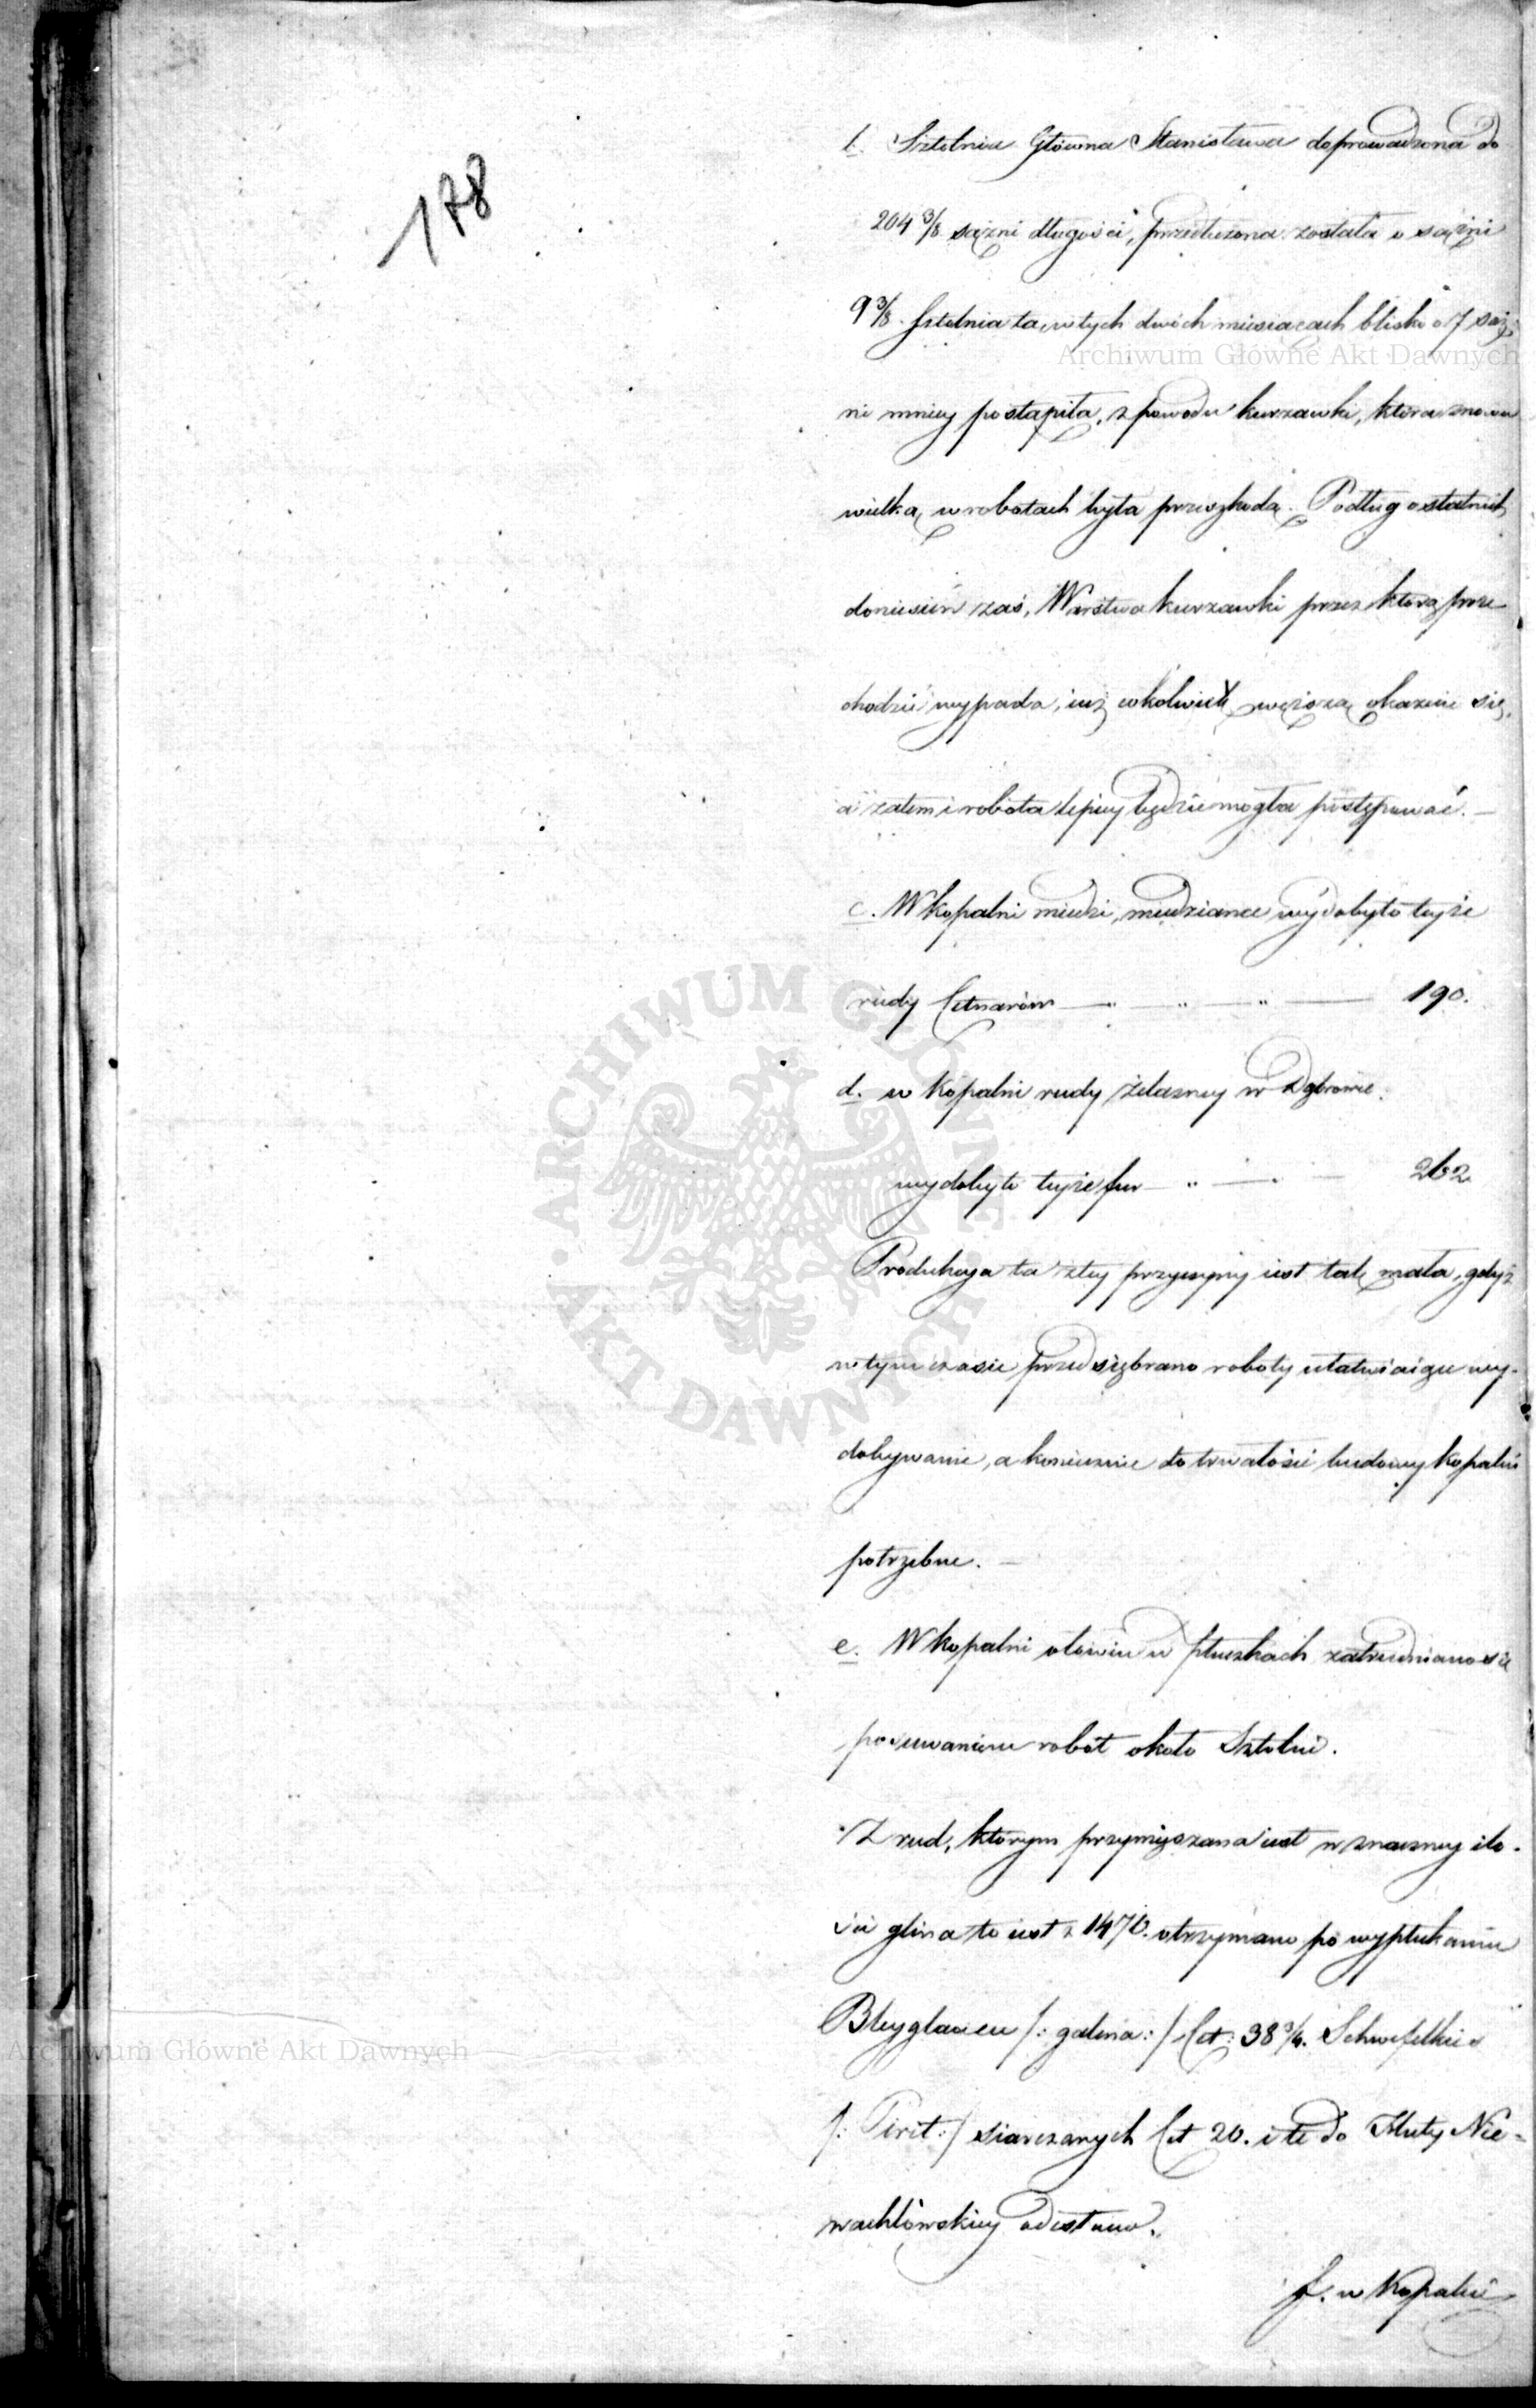 178
b. Sztolnia Główna Stanisława doprowadzona do
204 3/8 sążni długości, przedłużona została o sążni
9 3/8. Sztolnia ta, w tych dwóch miesiącach blisko o 7 sąż-
ni mniey postąpiła, z powodu kurzawki, która znowu
wielką w robotach była przeszkodą. Podług ostatnich
doniesień zaś, Warstwa kurzawki przez którą prze
chodzić wypada, iuż cokolwiek węższą okazuie się,
a zatem i robota lepiey będzie mogła postępować. —
c. W kopalni miedzi, miedziance wydobyto teyże
rudy Cetnarów — " — " — 190.
d. w Kopalni rudy żelazney w Dąbrowie.
wydobyto teyże fur — " — " — 262
Produkcya ta z tey przyczyny iest tak mała, gdyż
w tym czasie przedsiębrano roboty ułatwiaiące wy-
dobywanie, a koniecznie do trwałości budowy kopalni
potrzebne. —
e. W kopalni ołowiu w  zatrudniano sie
posuwaniem robót około Sztolni.
Z rud, którym przymięszana iest w znaczney ilo-
ści glina to iest z  otrzymano po wypłukaniu
Bleyglancu /: galena :/ Cet: 38 3/4. Schwefelkies
/: Pirit :/ siarczanych Cet 20. i te do Huty Nie-
wachlowskiey odesłano.
f. w Kopalni
Archiwum Główne Akt Dawnych
ARCHIWUM GŁÓWNE
AKT DAWNYCH
Archiwum Główne Akt Dawnych